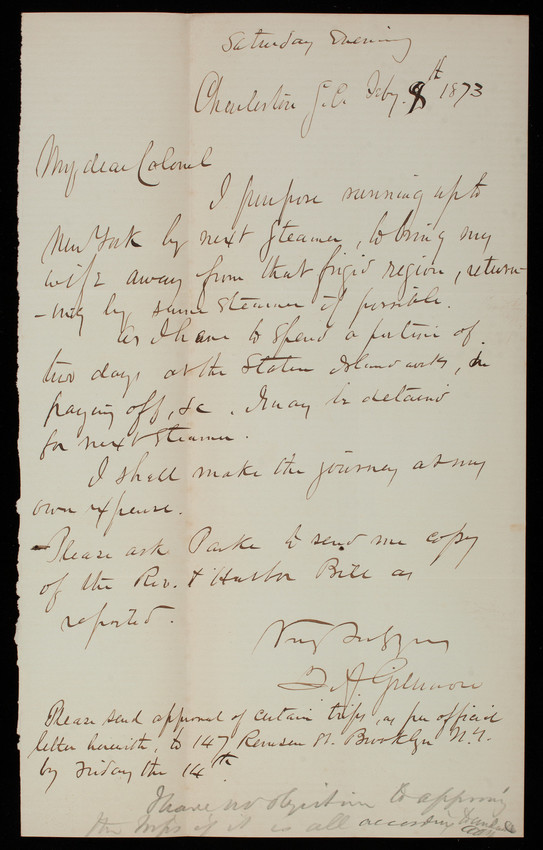 Saturday Evening
Charleston S.C. Feby. 8th 1873
My dear Colonel
I purpose running up to
New York by next steamer, to bring my
wife away from that frigid region, return-
-ing by same steamer if possible.
As I have to spend a portion of
two days at the Staten Island works, in
paying off, &c. I may be detained
for next steamer.
I shall make the journey at my
own expense.
-Please ask Parke to send me copy
of the Riv. & Harbor Bill as
reported.
Very truly yrs
Q. A. Gillmore
Please send approval of certain trips, as per official
letter herewith, to 147 Remsen St. Brooklyn N.Y.
by Friday the 14th
I have no objection to approving
the trips if it is all according